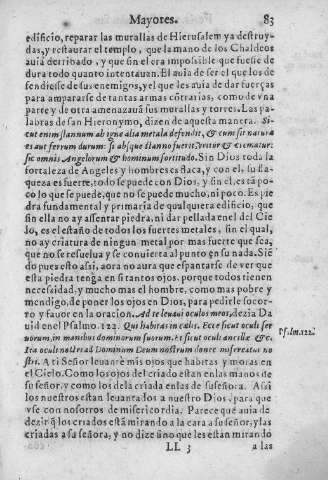 Mayores. 83
edificio, reparar las murallas de Hierusalem ya destruy-
das, y restaurar el templo, que la mano de los Chaldeos
auia derribado, y que sin el era impossible que fuesse de
dura todo quanto intentauan. El auia de ser el que los de
fendiesse de sus enemigos, y el que les auia de dar fuerças
para ampararse de tantas armas cõtrarias, como de vna
parte y de otra amenazauã sus murallas y torres. Las pa-
labras de san Hieronymo, dizen de aquesta manera. Si-
cut enim stannum ab igne alia metala defendit, & cum sit natura
es aut ferrum durum: si absque stanno fuerit, vritur & crematur:
sic omnis Angelorum & hominum fortitudo. Sin Dios toda la
fortaleza de Angeles y hombres es flaca, y con el, su fla-
queza es fuerte, todo se puede con Dios, y sin el, està po-
co lo que se puede, que no se puede mucho, ni poco. Es pie
dra fundamental y primaria de qualquiera edificio, que
sin ella no ay assentar piedra, ni dar pellada en el del Cie
lo, es el estaño de todos los fuertes metales, sin el qual,
no ay criatura de ningun metal por mas fuerte que sea,
que no se resuelua y se conuierta al punto en su nada. Siẽ
do pues esto assi, aora no aura que espantarse de ver que
esta piedra tenga en si tantos ojos, porque todos tienen
necessidad, y mucho mas el hombre, como mas pobre y
mendigo, de poner los ojos en Dios, para pedirle socor-
ro y fauor en la oracion. Ad te leuaui oculos meos, dezia Da
uid en el Psalmo. 122. Qui habitas in cælis. Ecce sicut oculi ser
uorum, in manibus dominorum suorum, Et sicut oculi ancillæ &c.
Ita oculi nostri ad Dominum Deum nostrum donec misereatur no
stri. A ti Señor leuantè mis ojos que habitas y moras en
el Cielo. Como los ojos del criado estan en las manos de
su señor, y como los de la criada en las de su señora. Assi
los nuestros estan leuantados a nuestro Dios, para que
vse con nosotros de misericordia. Parece que auia de
dezir, q̃ los criados estã mirando a la cara a su señor, y las
criadas a su señora, y no dize sino que les estan mirando
LL 3 a las
Psalm.122.